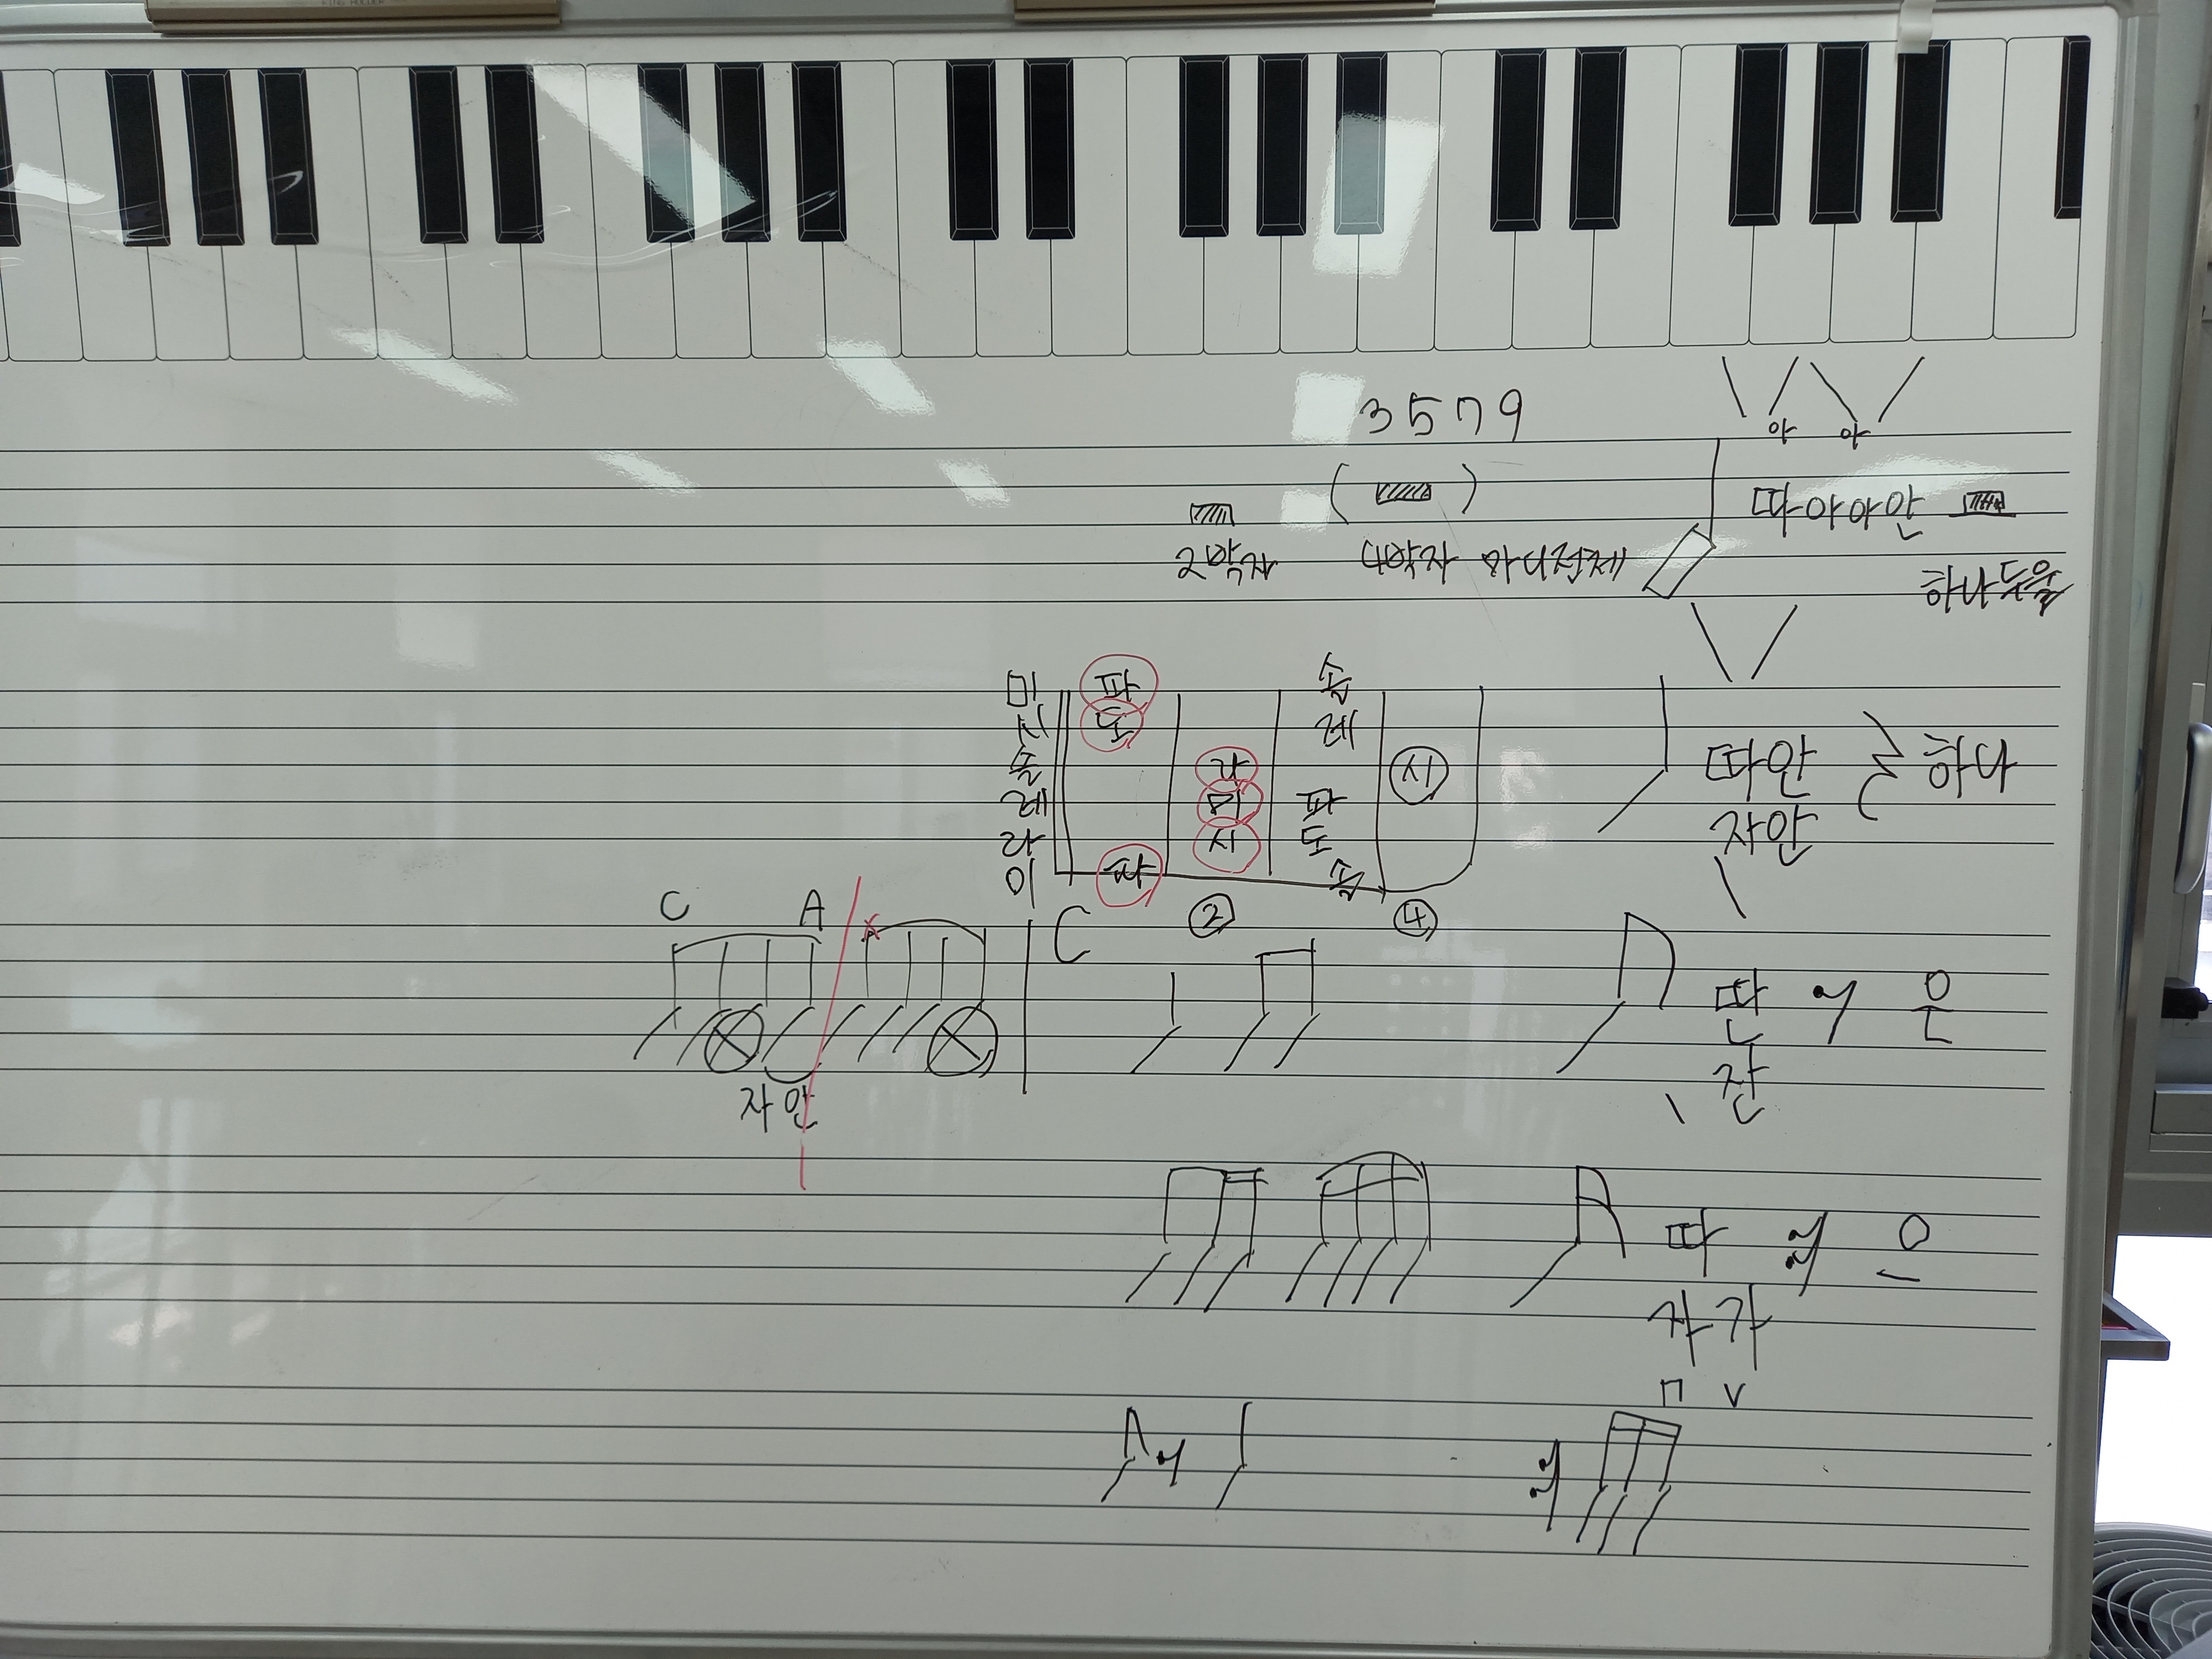 3 5 7 9
아 아
따아아안
2박자 4박자 하나전체
하나 두울
미 파 솔
시 도 레
솔 라 시
레 미 파
라 시 도
미 파 솔
따안 하나
자안
C A C ② ④
딴 은
잔
자안
따 으
자가